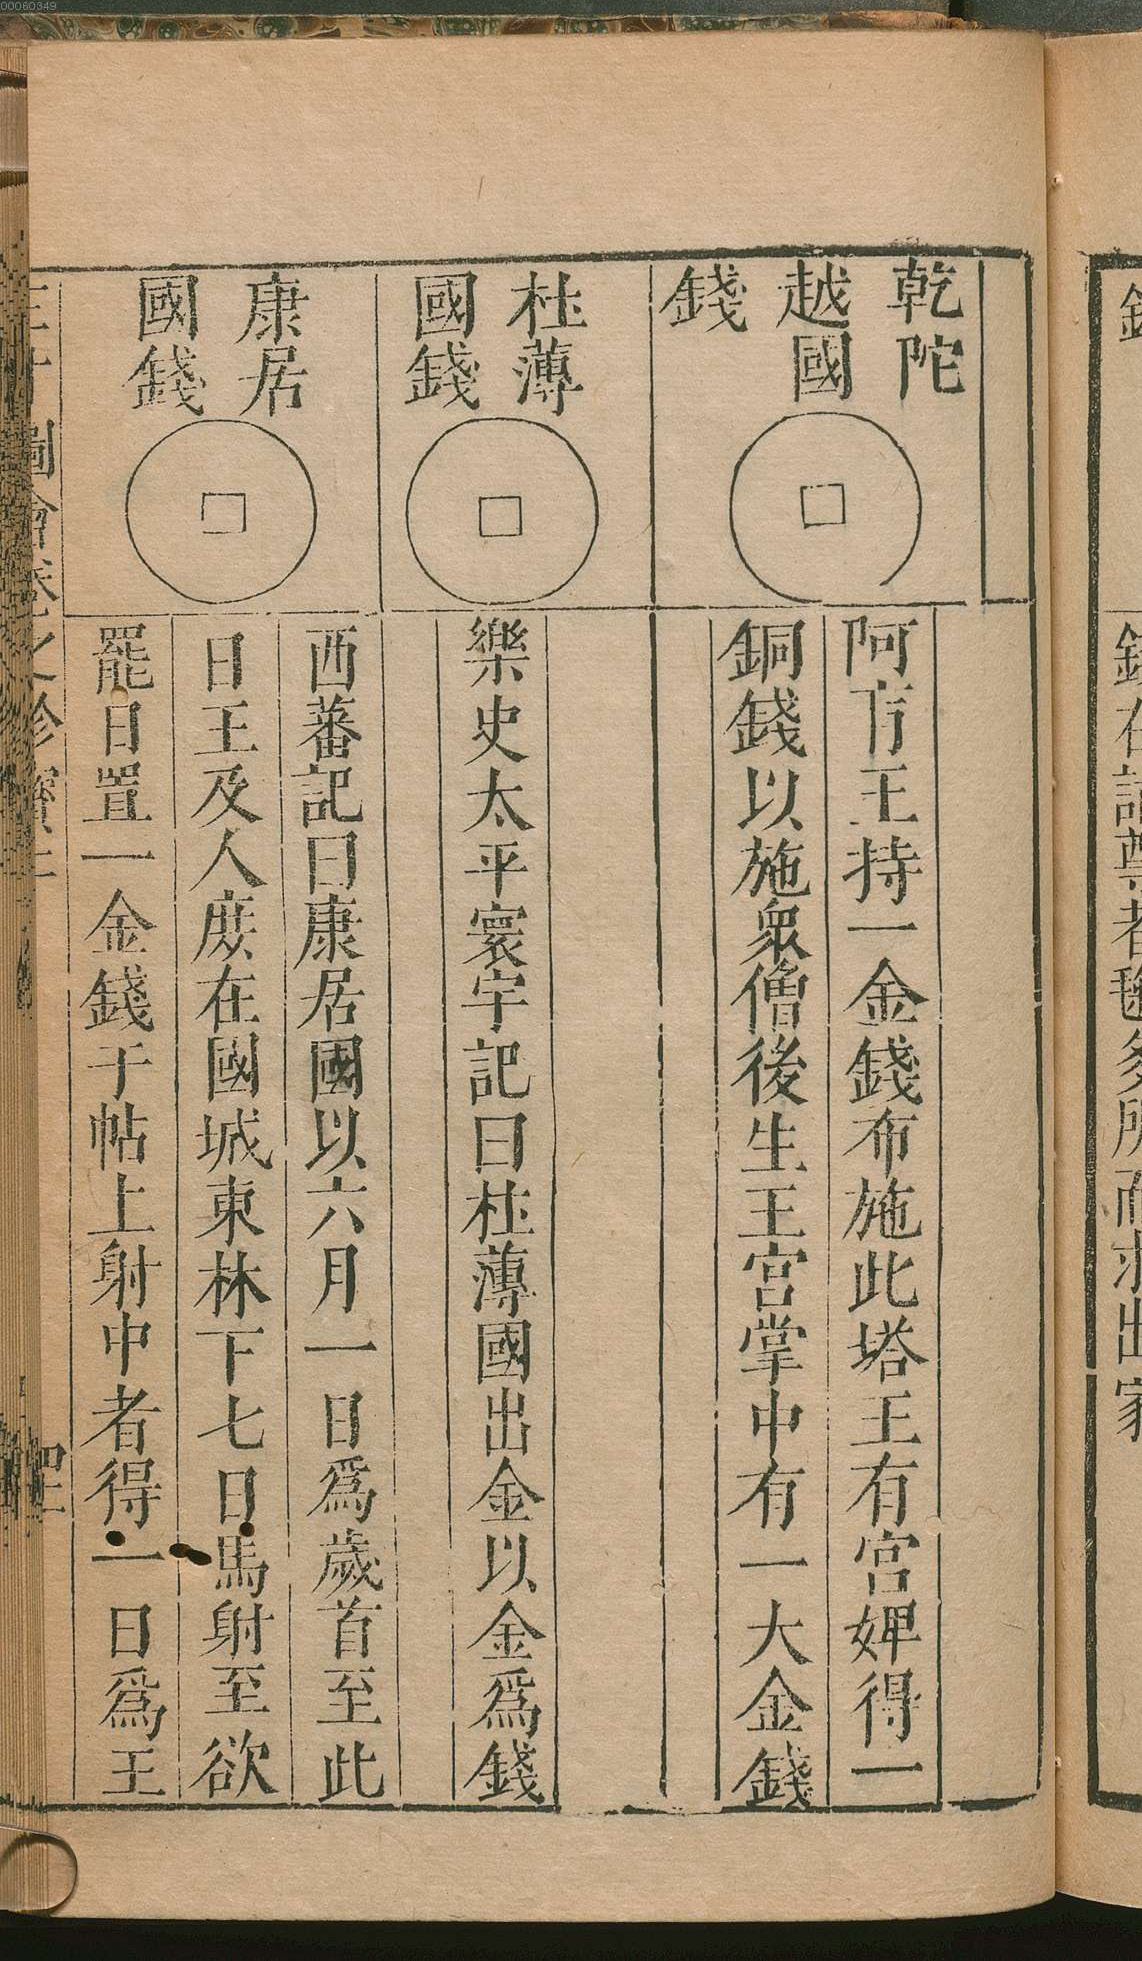 00060349
乾陀
越國
錢
阿育王持一金錢布施此塔王有宮婢得一
銅錢以施衆僧後生王宮掌中有一大金錢
杜薄
國錢
樂史太平寰宇記曰杜薄國出金以金爲錢
康居
國錢
西蕃記曰康居國以六月一日爲歲首至此
日王及人庻在國城東林下七日馬射至欲
罷日置一金錢于帖上射中者得一日爲王